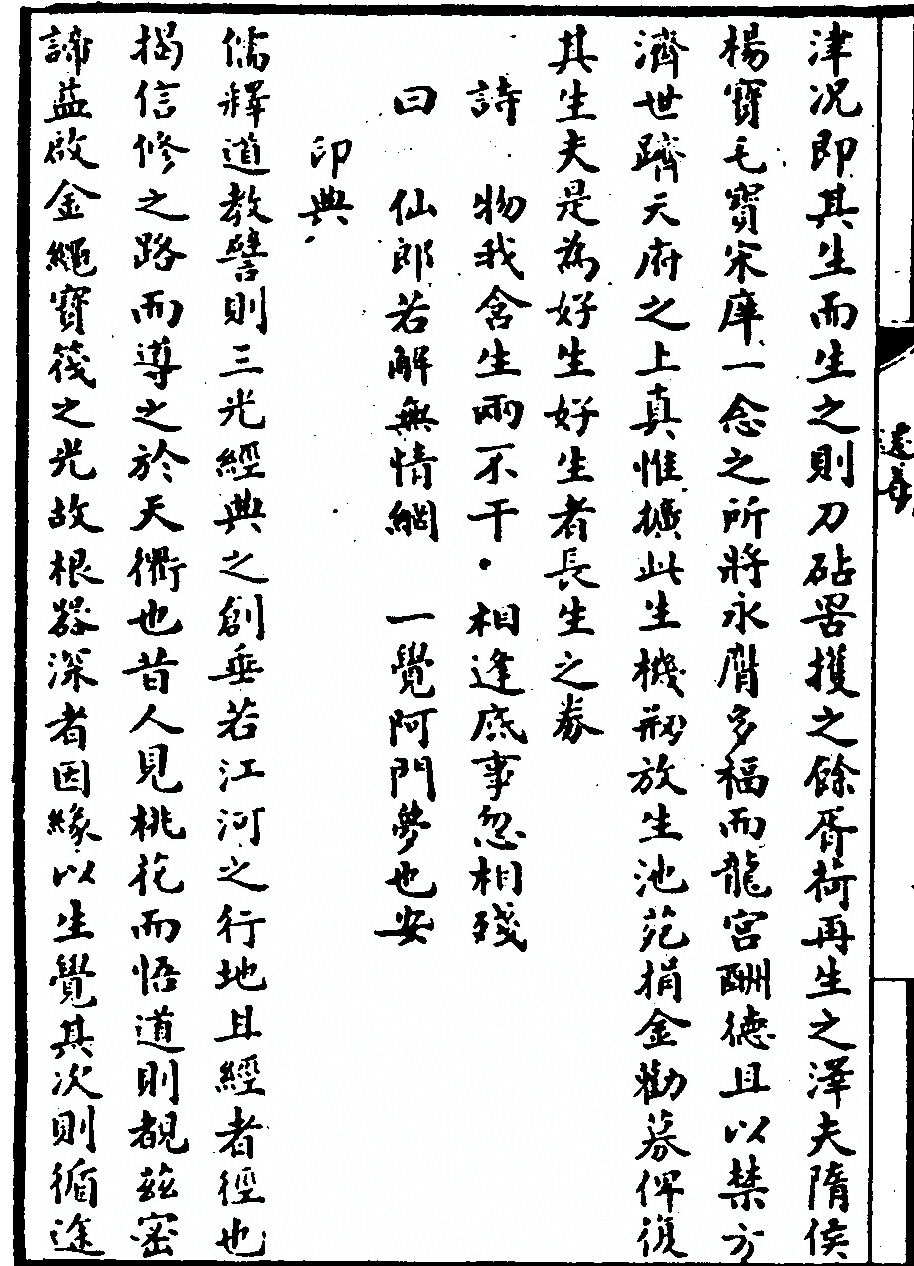 津况即其生而生之則刀砧罟擭之餘胥荷再生之澤夫隋侯
楊寶毛寶宋庠一念之所將永膺多福而龍宮酬德且以禁方
濟世躋天府之上真惟擴此生機剏放生池苑捐金勸募俾復
其生夫是為好生好生者長生之券
詩　物我含生兩不干　相逢底事忽相殘
曰　仙郎若解無情網　一覺阿門夢也安
印典
儒釋道教譬則三光經典之創垂若江河之行地且經者徑也
揭信修之路而導之於天衢也昔人見桃花而悟道則覩茲密
諦益啟金繩寶筏之光故根器深者因緣以生覺其次則循途